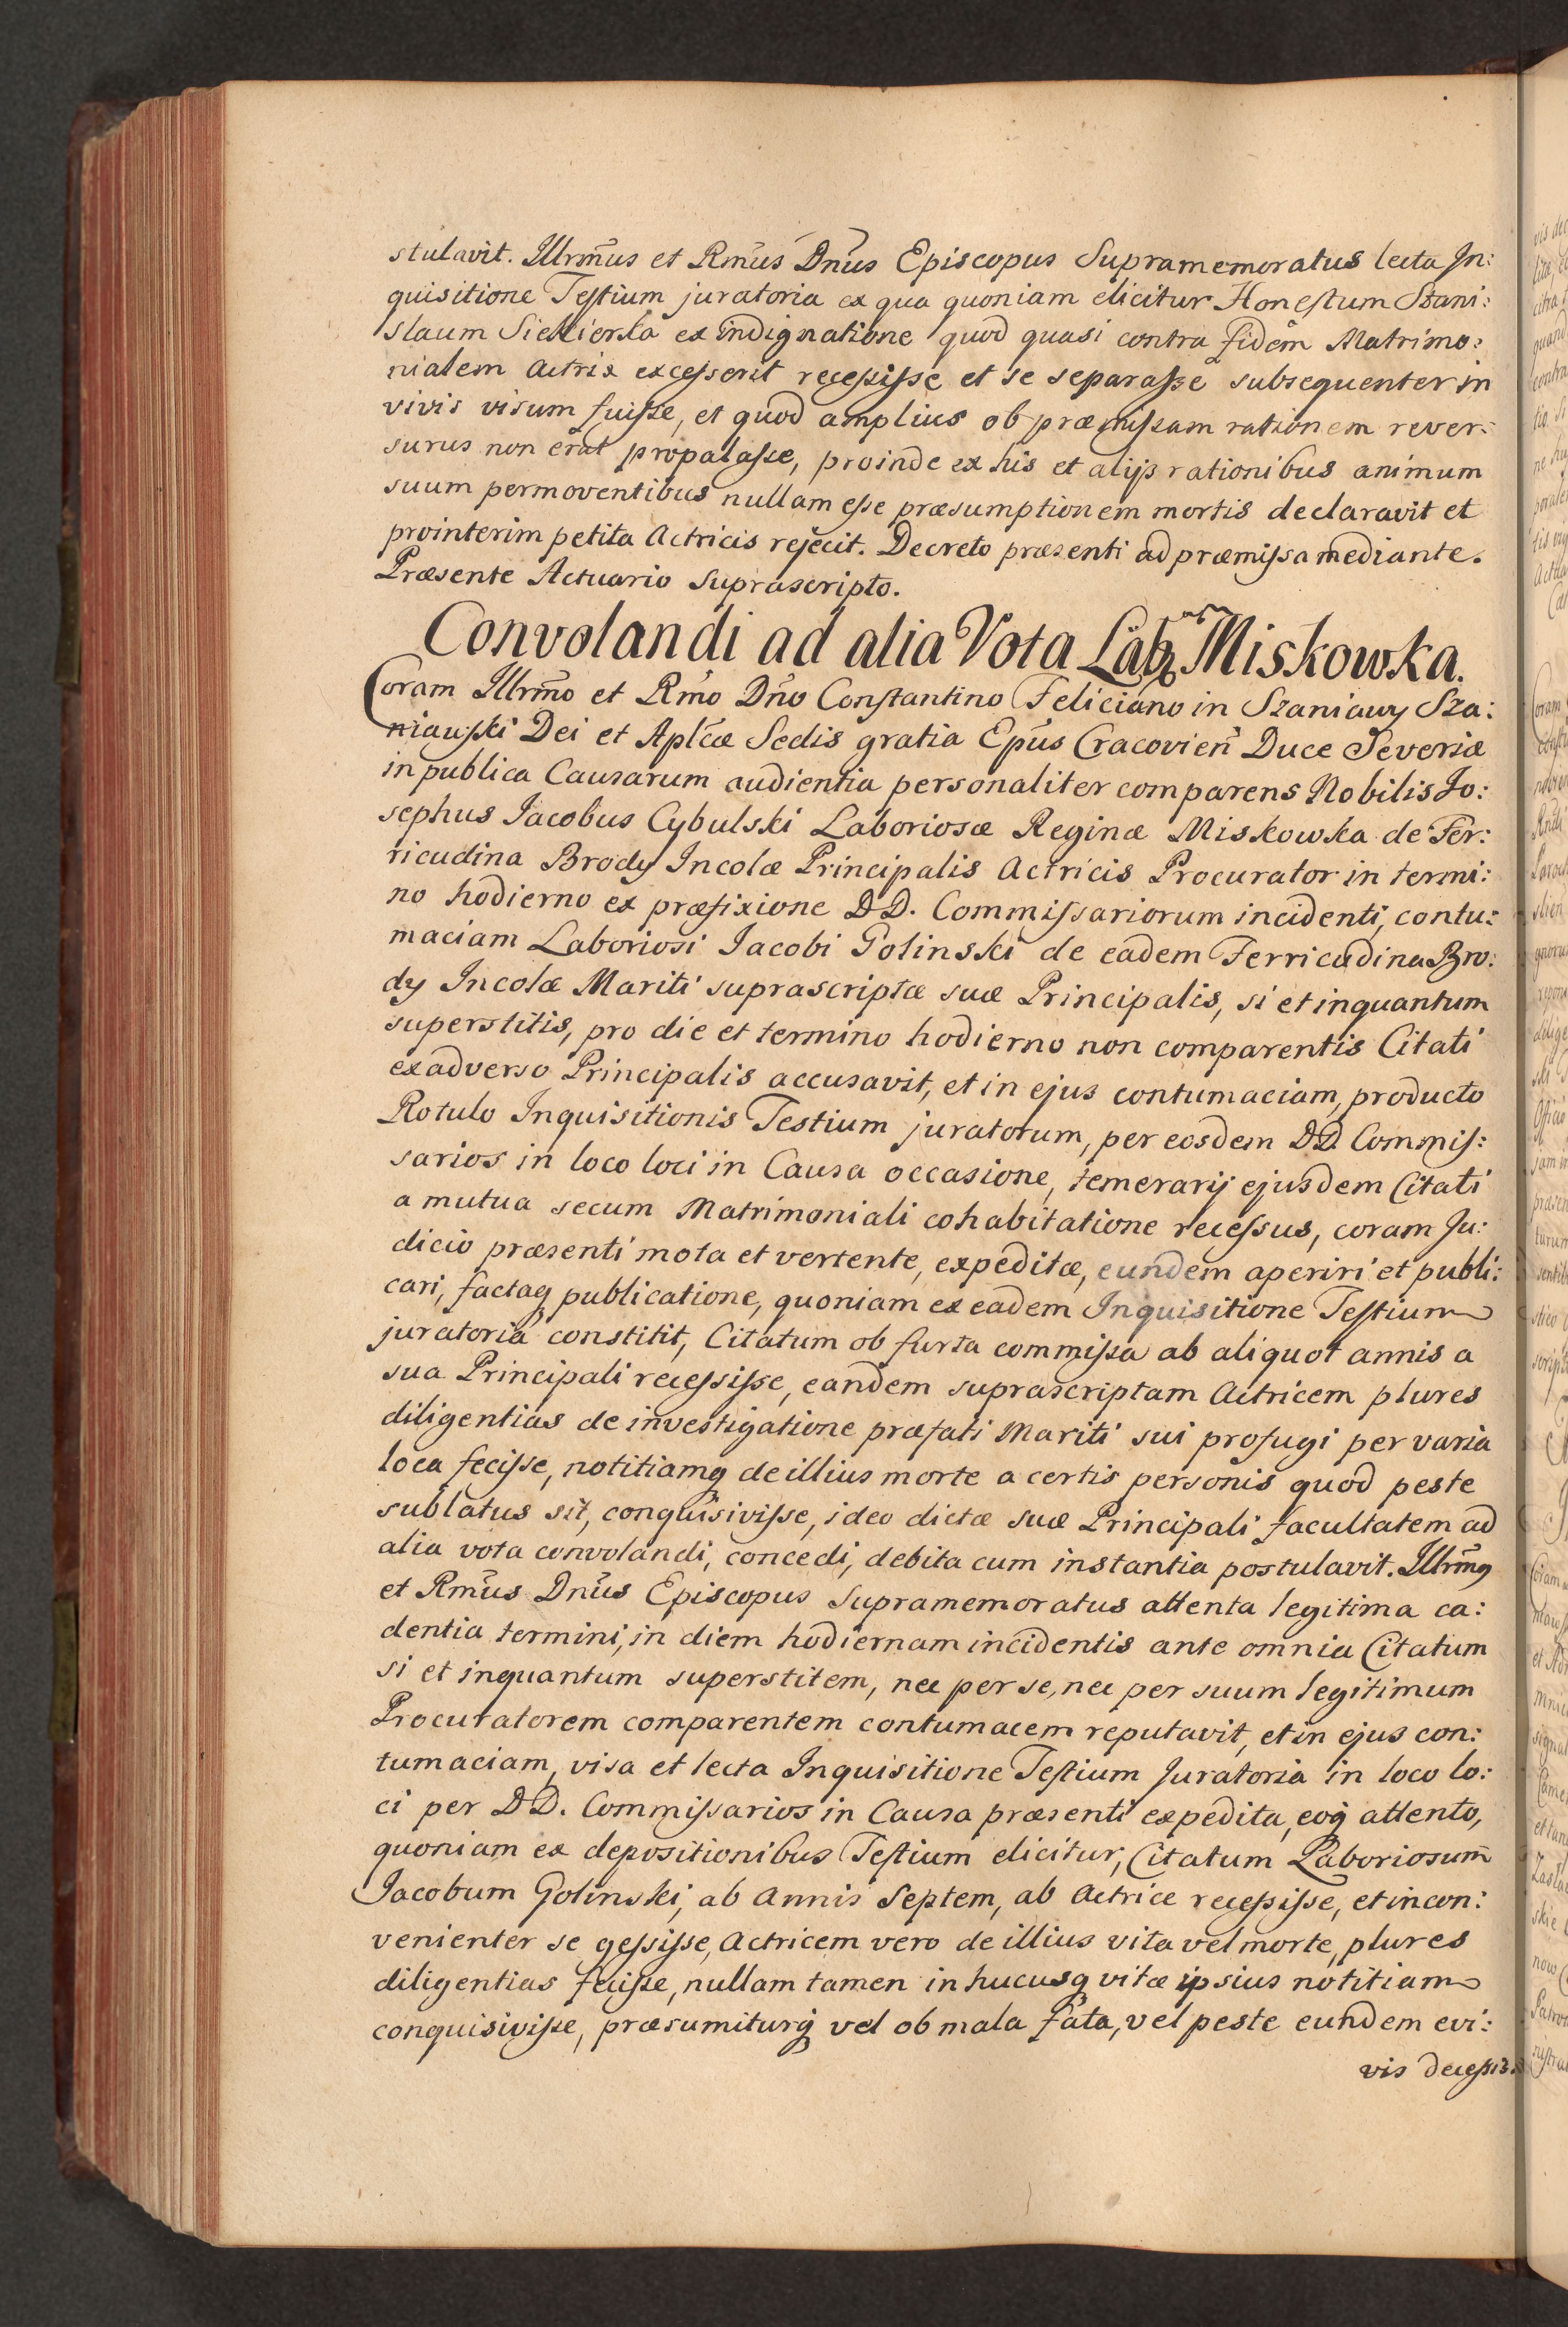 stulavit. Illrm̄us et Rm̄us Dn̄us Episcopus Supramemoratus lecta In:
quisitione Testium juratoria ex qua quoniam elicitur Honestum Stani:
slaum Siekierka ex indignatione quod quasi contra fidem Matrimo:
nialem Actrix excesserit recessisse et se separasse subsequenter in
vivis visum fuisse, et quod amplius ob præmissam rationem rever:
surus non erat propalasse, proinde ex his et alijs rationibus animum
suum permoventibus nullam esse præsumptionem mortis declaravit et
prointerim petita Actricis rejecit. Decreto præsenti ad præmissa mediante.
Præsente Actuario Suprascripto.
Convolandi ad alia Vota Lab Miskowka.
Coram Illrm̄o et Rm̄o Dn̄o Constantino Feliciano in Szaniawy Sza:
niawski Dei et Aplc̄æ Sedis gratia Ep̄us Cracovien̄ Duce Severiæ
in publica Causarum audientia personaliter comparens Nobilis Jo:
sephus Jacobus Cybulski Laboriosæ Reginæ Miskowka de Fer:
ricudina Brody Incolæ Principalis Actricis Procurator in termi:
no hodierno ex præfixione DD. Commissariorum incidenti, contu:
maciam Laboriosi Jacobi Golinski de eadem Ferricudina Bro:
dy Incolæ Mariti suprascriptæ suæ Principalis, si et inquantum
superstitis, pro die et termino hodierno non comparentis Citati
exadverso Principalis accusavit, et in ejus contumaciam, producto
Rotulo Inquisitionis Testium juratorum, per eosdem DD. Commis:
sarios in loco loci in Causa occasione, temerarij ejusdem Citati
a mutua secum Matrimoniali cohabitatione recessus, coram Ju:
dicio præsenti mota et vertente, expeditæ, eundem aperiri et publi:
cari, factaq publicatione, quoniam ex eadem Inquisitione Testium
juratoria constitit, Citatum ob furta commissa ab aliquot annis a
sua Principali recessisse, eandem suprascriptam Actricem plures
diligentias de investigatione præfati Mariti sui profugi per varia
loca fecisse, notitiamq de illius morte a certis personis quod peste
sublatus sit, conquisivisse, ideo dictæ suæ Principali facultatem ad
alia vota convolandi, concedi, debita cum instantia postulavit. Illrm̄q
et Rm̄us Dn̄us Episcopus Supramemoratus attenta legitima ca:
dentia termini, in diem hodiernam incidentis ante omnia Citatum
si et inquantum superstitem, nec per se, nec per suum legitimum
Procuratorem comparentem contumacem reputavit, et in ejus con:
tumaciam, visa et lecta Inquisitione Testium Juratoria in loco lo:
ci per DD. Commissarios in Causa præsenti expedita, eoq attento,
quoniam ex depositionibus Testium elicitur, Citatum Laboriosum
Jacobum Golinski, ab Annis Septem, ab Actrice recessisse, et incon:
venienter se gessisse, Actricem vero de illius vita vel morte, plures
diligentias fecisse, nullam tamen in hucusq vitæ ipsius notitiam
conquisivisse, præsumiturq vel ob mala fata, vel peste eundem evi:
vis decessis.